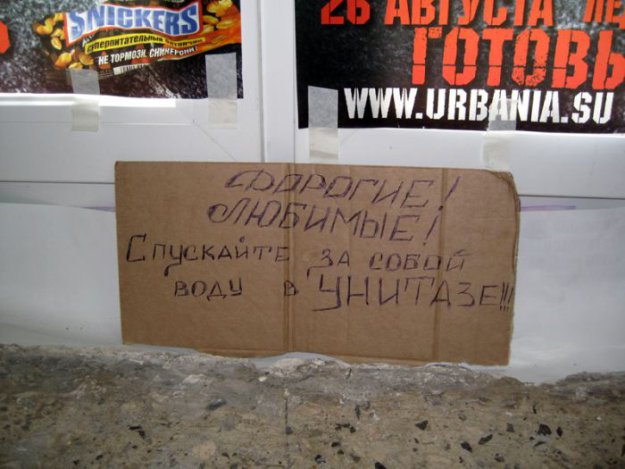 SNICKERS
суперпитательный
НЕ ТОРМОЗИ. СНИКЕРСНИ!
26 АВГУСТА
ГОТОВЬ
WWW.URBANIA.SU
ДОРОГИЕ!
ЛЮБИМЫЕ!
СПУСКАЙТЕ ЗА СОБОЙ
ВОДУ В УНИТАЗЕ!!!